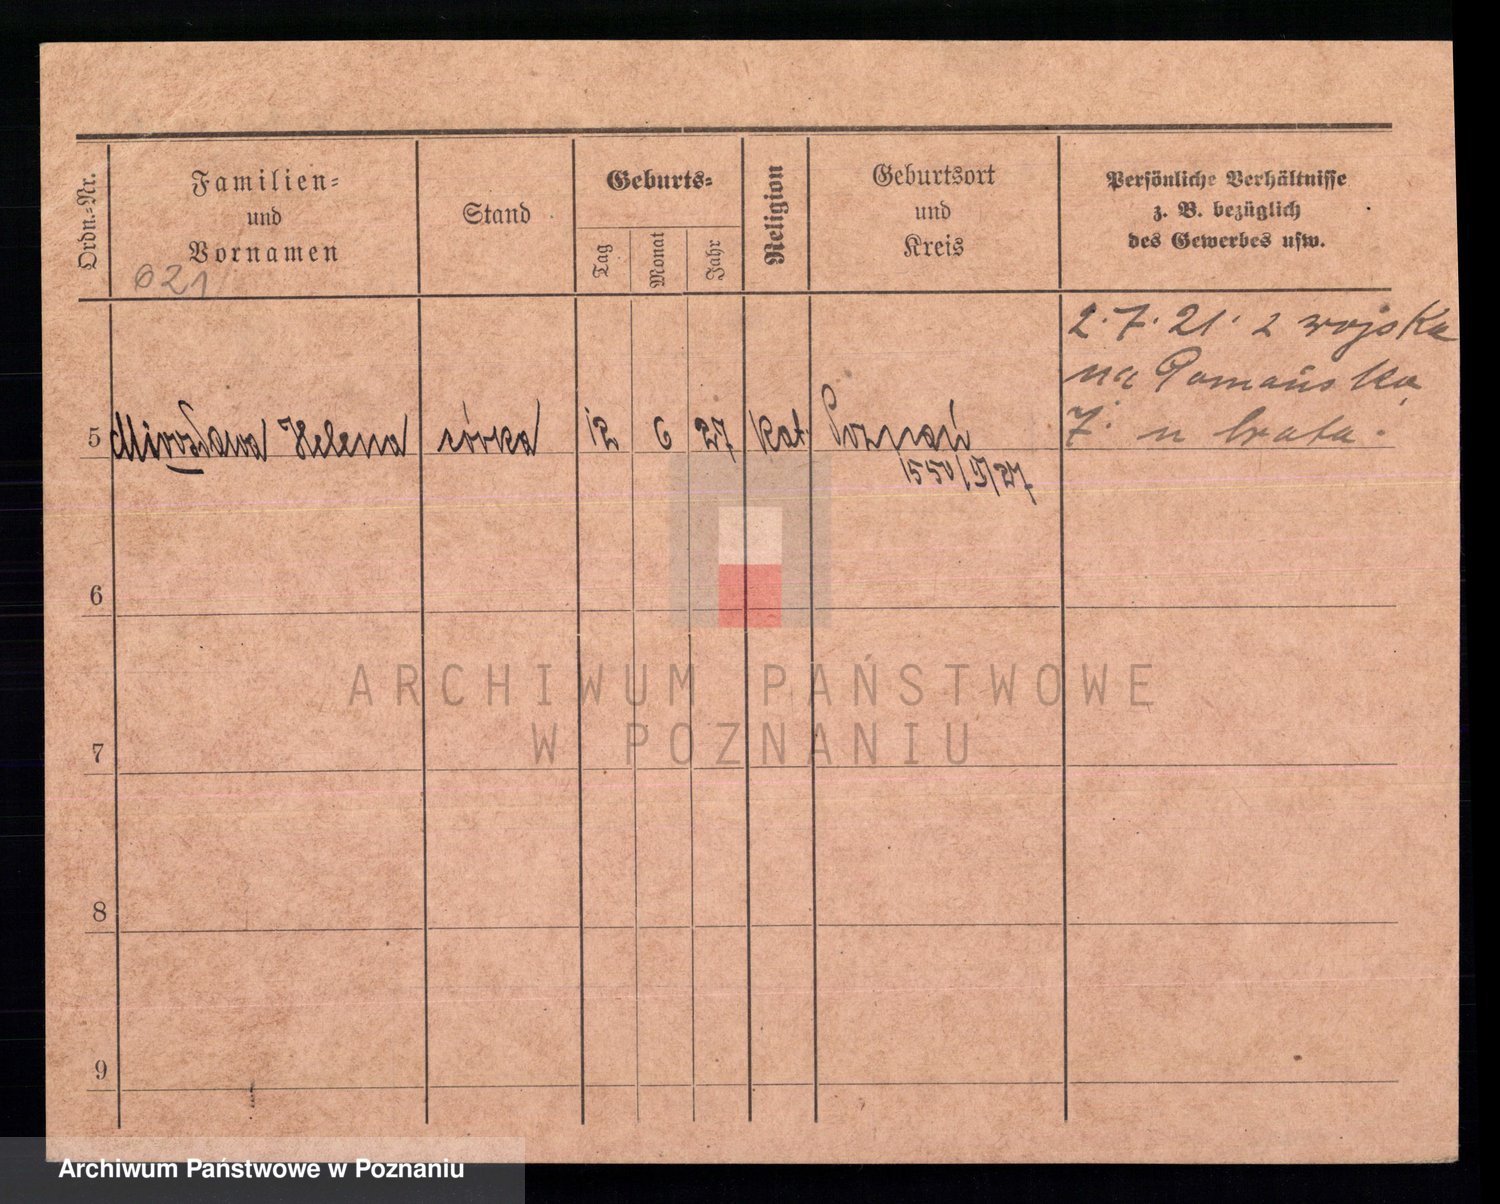 Ordn.-Nr.
Familien-
und
Vornamen
021
Stand
Geburts-
Tag
Monat
Jahr
Religion
Geburtsort
und
Kreis
Persönliche Verhältnisse
z. B. bezüglich
des Gewerbes usw.
2.7.21. z wojska
na
7. u brata.
5 Mirosława Helena córka 12 6 27 kat. Poznań
1550/I/27
6
ARCHIWUM PAŃSTWOWE
W POZNANIU
7
8
9
Archiwum Państwowe w Poznaniu